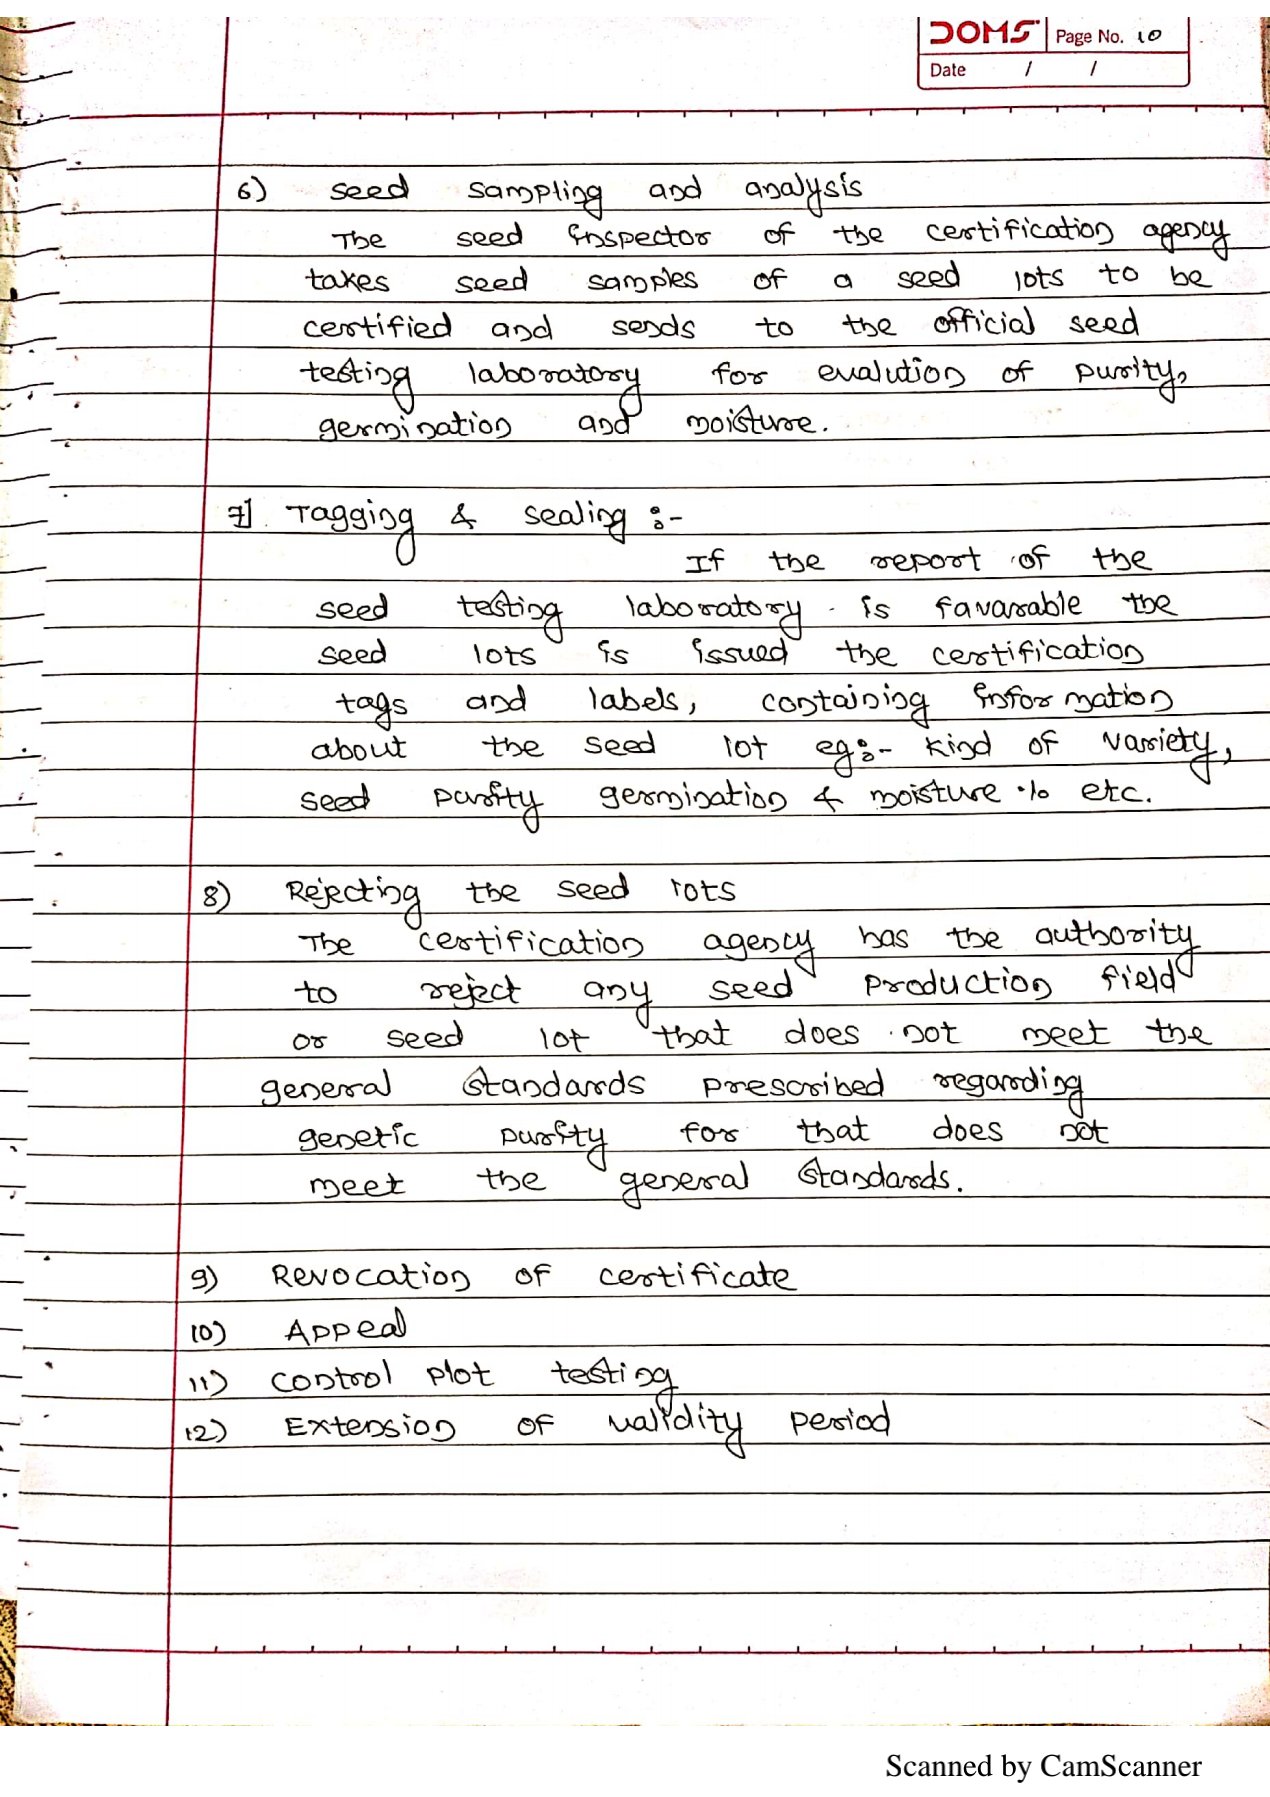 DOMS Page No. 10
Date / /
6) seed sampling and analysis
The seed inspector of the certification agency
takes seed samples of a seed lots to be
certified and sends to the official seed
testing laboratory for evalution of purity,
germination and moisture.
7] Tagging & sealing :-
If the report of the
seed testing laboratory is favarable the
seed lots is issued the certification
tags and labels, containing information
about the seed lot eg:- kind of variety,
seed purity germination & moisture % etc.
8) Rejecting the seed lots
The certification agency has the authority
to reject any seed production field
or seed lot that does not meet the
general standards prescribed regarding
genetic purity for that does not
meet the general standards.
9) Revocation of certificate
10) Appeal
11) control plot testing
12) Extension of validity period
Scanned by CamScanner